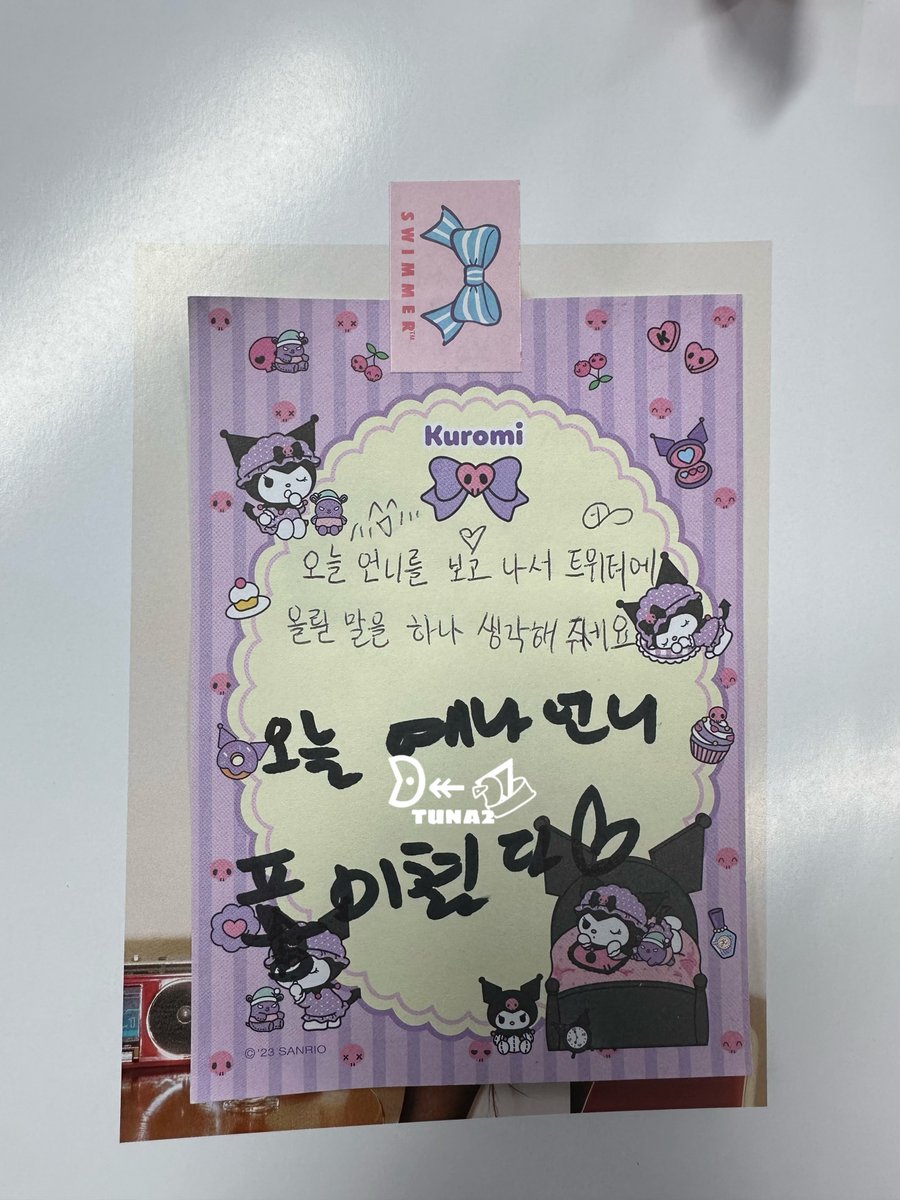 SWIMMER™
Kuromi
오늘 언니를 보고 나서 트위터에
올릴 말을 하나 생각해 줘세요
오늘 예나 언니
폼 미쳤다
TUNA2
© '23 SANRIO